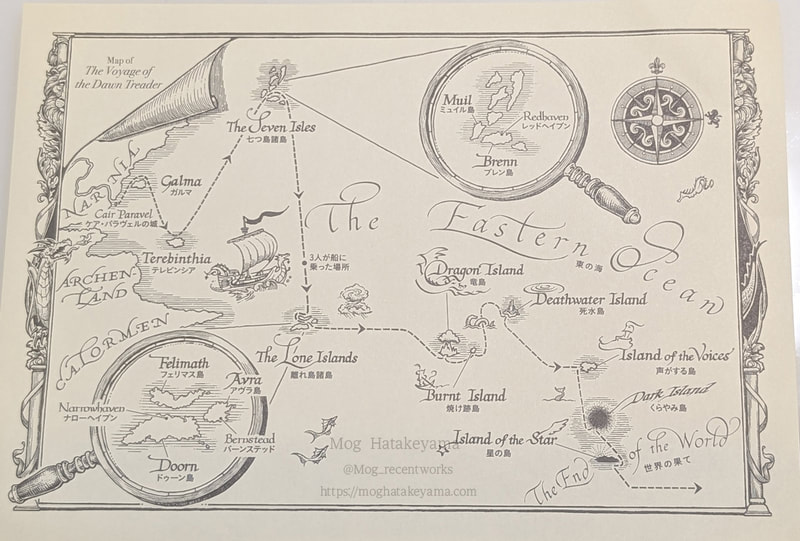 Map of
The Voyage of
the Dawn Treader
The Seven Isles
七つ島諸島
Muil
ミュイル島
Redhaven
レッドヘイブン
Brenn
ブレン島
NARNIA
Galma
ガルマ
Cair Paravel
ケア・パラヴェルの城
Terebinthia
テレビンシア
The Eastern Ocean
東の海
3人が船に
乗った場所
ARCHEN-
LAND
Dragon Island
竜島
Deathwater Island
死水島
CALORMEN
The Lone Islands
離れ島諸島
Island of the Voices
声がする島
Felimath
フェリマス島
Avra
アヴラ島
Narrowhaven
ナローヘイブン
Bernstead
バーンステッド
Doorn
ドゥーン島
Burnt Island
焼け跡島
Dark Island
くらやみ島
Island of the Star
星の島
The End of the World
世界の果て
Mog Hatakeyama
@Mog_recentworks
https://moghatakeyama.com